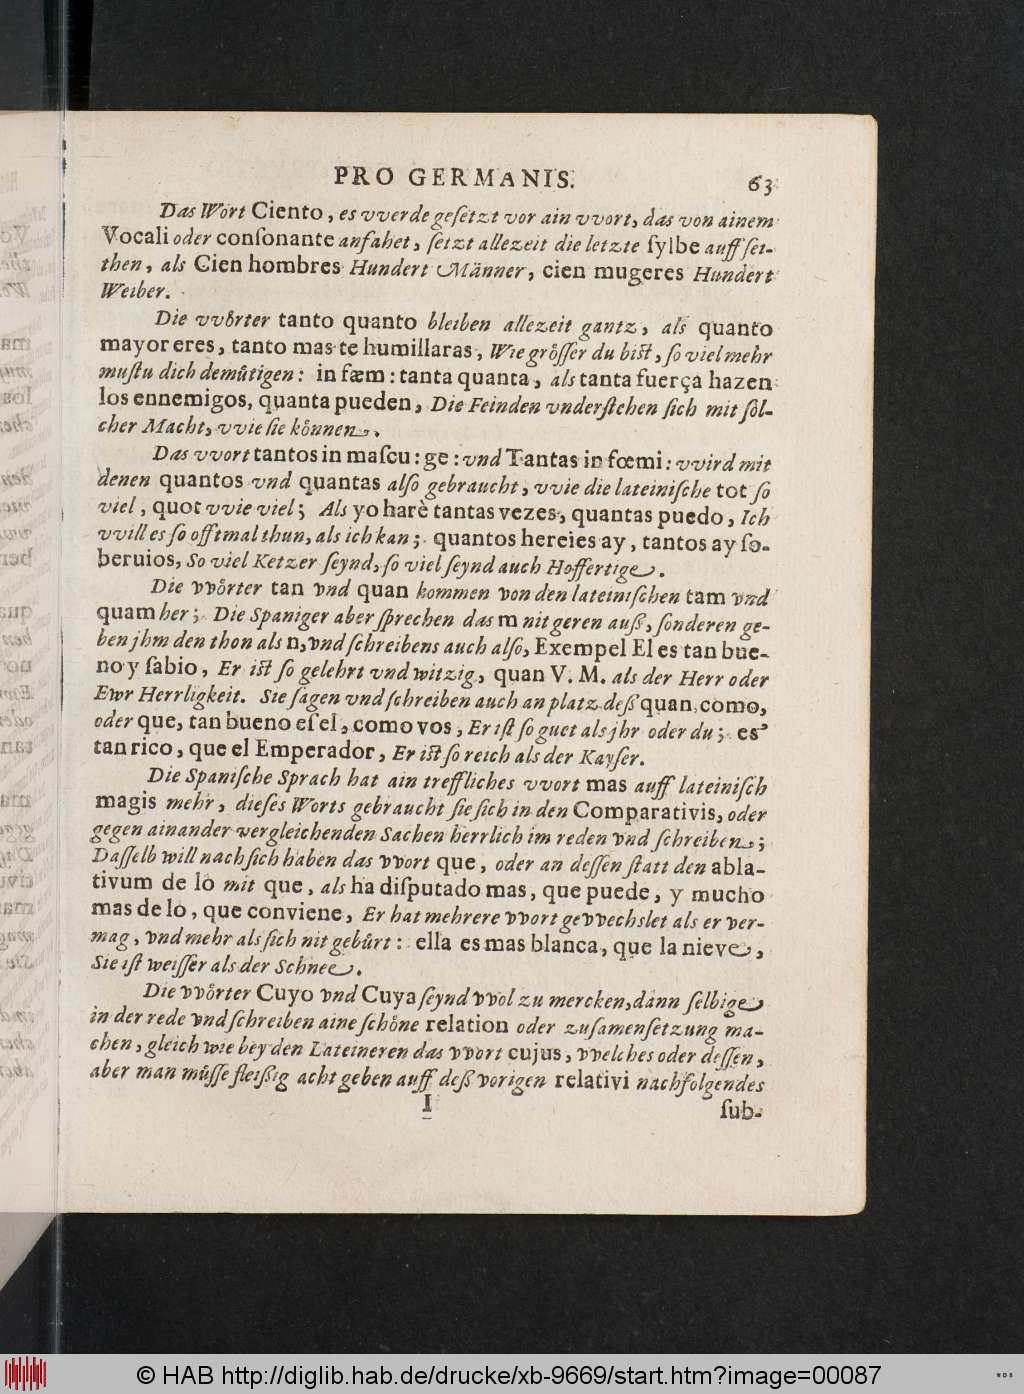 PRO GERMANIS. 63
Das Wort Ciento, es vverde geſetzt vor ain vvort, das von ainem
Vocali oder conſonante anfahet, ſetzt allezeit die letzte ſylbe auff ſei-
then, als Cien hombres Hundert Männer, cien mugeres Hundert
Weiber.
Die vvo̊rter tanto quanto bleiben allezeit gantz, als quanto
mayor eres, tanto mas te humillaras, Wie gro̊ſſer du biſt, ſo viel mehr
muſtu dich demu̇tigen: in fæm: tanta quanta, als tanta fuerça hazen
los ennemigos, quanta pueden, Die Feinden vnderſtehen ſich mit ſo̊l-
cher Macht, vvie ſie ko̊nnen.
Das vvort tantos in maſcu: ge: vnd Tantas in fœmi: vvird mit
denen quantos vnd quantas alſo gebraucht, vvie die lateiniſche tot ſo
viel, quot vvie viel; Als yo harè tantas vezes, quantas puedo, Ich
vvill es ſo offtmal thun, als ich kan; quantos hereies ay, tantos ay ſo-
beruios, So viel Ketzer ſeynd, ſo viel ſeynd auch Hoffertige.
Die vvo̊rter tan vnd quan kommen von den lateiniſchen tam vnd
quam her; Die Spaniger aber ſprechen das m nit geren auß, ſonderen ge-
ben jhm den thon als n, vnd ſchreibens auch alſo, Exempel El es tan bue-
no y ſabio, Er iſt ſo gelehrt vnd witzig, quan V. M. als der Herr oder
Ewr Herrligkeit. Sie ſagen vnd ſchreiben auch an platz deß quan, como,
oder que, tan bueno eſ el, como vos, Er iſt ſo guet als jhr oder du; es
tan rico, que el Emperador, Er iſt ſo reich als der Kayſer.
Die Spaniſche Sprach hat ain treffliches vvort mas auff lateiniſch
magis mehr, dieſes Worts gebraucht ſie ſich in den Comparativis, oder
gegen ainander vergleichenden Sachen herrlich im reden vnd ſchreiben;
Daſſelb will nach ſich haben das vvort que, oder an deſſen ſtatt den abla-
tivum de lo mit que, als ha diſputado mas, que puede, y mucho
mas de lo, que conviene, Er hat mehrere vvort gevvechslet als er ver-
mag, vnd mehr als ſich nit gebu̇rt: ella es mas blanca, que la nieve,
Sie iſt weiſſer als der Schnee.
Die vvo̊rter Cuyo vnd Cuya ſeynd vvol zu mercken, dann ſelbige
in der rede vnd ſchreiben aine ſcho̊ne relation oder zuſamenſetzung ma-
chen, gleich wie bey den Lateineren das vvort cujus, vvelches oder deſſen,
aber man mu̇ſſe fleißig acht geben auff deß vorigen relativi nachfolgendes
I ſub-
© HAB http://diglib.hab.de/drucke/xb-9669/start.htm?image=00087